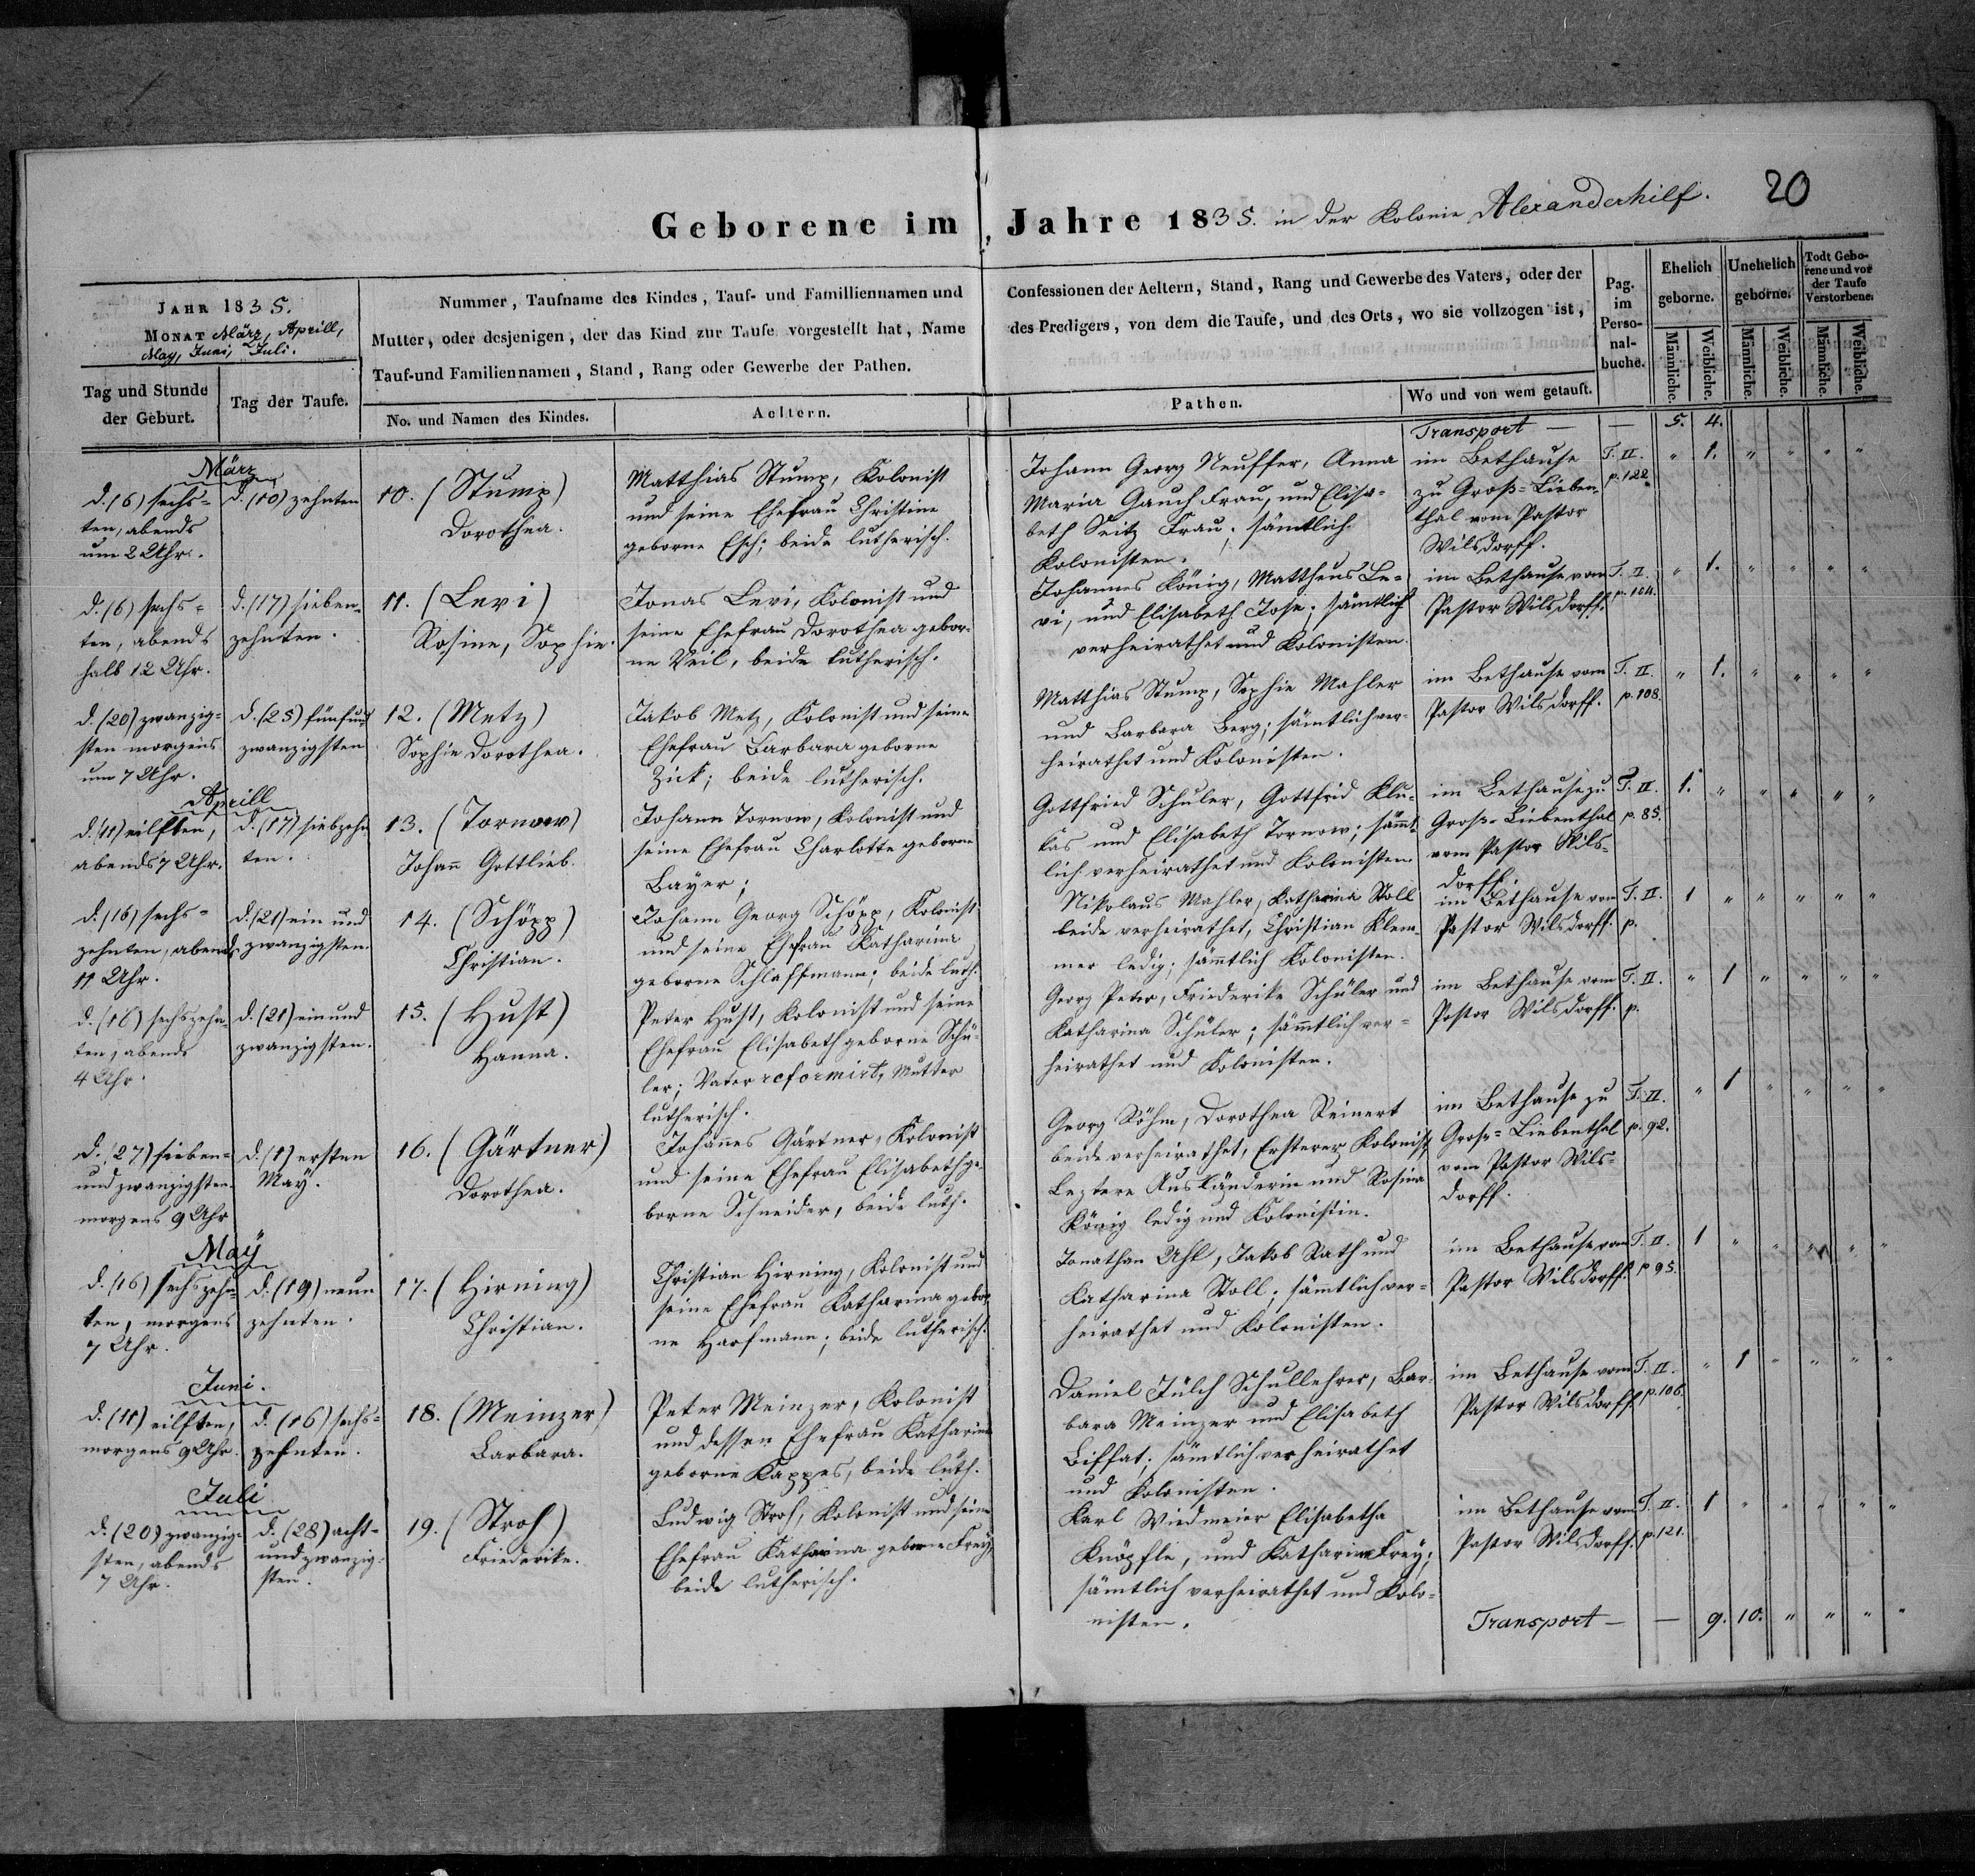 20
Geborene im Jahre 1835. in der Kolonie Alexanderhilf.
JAHR 1835.
MONAT März, Aprill,
May, Juni, Juli.
Tag und Stunde
der Geburt.
Tag der Taufe.
Nummer, Taufname des Kindes, Tauf- und Familliennamen und
Mutter, oder desjenigen, der das Kind zur Taufe vorgestellt hat, Name
Tauf-und Familiennamen, Stand, Rang oder Gewerbe der Pathen.
No. und Namen des Kindes.
Aeltern.
Confessionen der Aeltern, Stand, Rang und Gewerbe des Vaters, oder der
des Predigers, von dem die Taufe, und des Orts, wo sie vollzogen ist,
Pathen.
Wo und von wem getauft.
Pag.
im
Perso-
nal-
buche.
Ehelich
geborne.
Unehelich
geborne.
Todt Gebo-
rene und vor
der Taufe
Verstorbene.
Männliche.
Weibliche.
Männliche.
Weibliche.
Männliche.
Weibliche.
Transport — — 5. 4.
März
d. (6) sechs-
ten, abends
um 2 Uhr.
d. (10) zehnten
10. (Stump)
Dorothea.
Matthias Stump, Kolonist
und seine Ehefrau Christine
geborne Esch; beide lutherisch.
Johann Georg Neuffer, Anna
Maria Gauch Frau, und Elisa-
beth Seitz Frau; sämtlich
Kolonisten.
im Bethause
zu Groß-Lieben-
thal vom Pastor
Wilsdorff.
T. II.
p. 122.
" 1. " " " "
d. (6) sechs-
ten, abends
halb 12 Uhr.
d. (17) sieben-
zehnten.
11. (Levi)
Rosine, Sophie.
Jonas Levi, Kolonist und
seine Ehefrau Dorothea gebor-
ne Veil, beide lutherisch.
Johannes König, Matthäus Le-
vi, und Elisabeth Jose; sämtlich
verheirathet und Kolonisten.
im Bethause vom
Pastor Wilsdorff.
T. II.
p. 104.
" 1. " " " "
d. (20) zwanzig-
sten morgens
um 7 Uhr.
d. (25) fünfund
zwanzigsten
12. (Metz)
Sophie Dorothea.
Jakob Metz, Kolonist und seine
Ehefrau Barbara geborne
Zick; beide lutherisch.
Matthias Stump, Sophie Mahler
und Barbara Berg; sämtlich ver-
heirathet und Kolonisten.
im Bethause vom
Pastor Wilsdorff.
T. II.
p. 108.
" 1. " " " "
Aprill
d. (11) eilften,
abends 7 Uhr.
d. (17) siebzehn
ten.
13. (Tornow)
Johan̄ Gottlieb.
Johann Tornow, Kolonist und
seine Ehefrau Charlotte geborne
Bayer;
Gottfried Schuler, Gottfrid Klu-
kas und Elisabeth Tornow; sämt-
lich verheirathet und Kolonisten.
im Bethause zu
Groß-Liebenthal
vom Pastor Wils-
dorff.
T. II.
p. 85.
1. " " " " "
d. (16) sechs-
zehnten, abends
11 Uhr.
d. (21) ein und
zwanzigsten.
14. (Schöpp)
Christian.
Johann Georg Schöpp, Kolonist
und seine Ehefrau Katharina
geborne Schlaffmann; beide luth.
Nikolaus Mahler, Katharina Stoll
beide verheirathet, Christian Klem-
mer ledig; sämmtlich Kolonisten.
im Bethause vom
Pastor Wilsdorff.
T. II.
p.
1 " " " " "
d. (16) sechszehn-
ten, abends
4 Uhr.
d. (21) ein und
zwanzigsten.
15. (Hust)
Hanna.
Peter Hust, Kolonist und seine
Ehefrau Elisabeth geborne Schü-
ler; Vater reformirt, Mutter
lutherisch.
Georg Peter, Friederike Schüler und
Katharina Schüler; sämmtlich ver-
heirathet und Kolonisten.
im Bethause vom
Pastor Wilsdorff.
T. II.
p.
" 1 " " " "
d. (27) sieben-
und zwanzigsten
morgens 9 Uhr
d. (1) ersten
May.
16. (Gärtner)
Dorothea.
Johan̄es Gärtner, Kolonist
und seine Ehefrau Elisabeth ge-
borne Schneider, beide luth.
Georg Röhm, Dorothea Reinert
beide verheirathet, Ersterer Kolonist,
Leztere Ausländerin und Rosina
König ledig und Kolonistin.
im Bethause zu
Gros-Liebenthal
vom Pastor Wils-
dorff.
T. II.
p. 92.
" 1 " " " "
May
d. (16) sechszehn-
ten, morgens
7 Uhr.
d. (19) neun
zehnten.
17. (Hirning)
Christian.
Christian Hirning, Kolonist und
seine Ehefrau Katharina gebor-
ne Harfmann; beide lutherisch.
Jonathan Uhl, Jakob Rath und
Katharina Stoll; sämmtlich ver-
heirathet und Kolonisten.
im Bethause vom
Pastor Wilsdorff.
T. II.
p 95.
1 " " " " "
Juni.
d. (11) eilften,
morgens 9 Uhr.
d. (16) sechs-
zehnten.
18. (Meinzer)
Barbara.
Peter Meinzer, Kolonist
und dessen Ehefrau Katharina
geborne Kappes, beide luth.
Daniel Jülch Schullehrer, Bar-
bara Meinzer und Elisabeth
Biffat; sämtlich verheirathet
und Kolonisten.
im Bethause vom
Pastor Wilsdorff.
T. II.
p. 106.
" 1 " " " "
Juli
d. (20) zwanzig-
sten, abends
7 Uhr.
d. (28) acht-
und zwanzig-
sten.
19. (Stroh)
Friederike.
Ludwig Stroh, Kolonist und seine
Ehefrau Katharina geborne Frey,
beide lutherisch.
Karl Wiedmeier Elisabetha
Knöpfle, und Katharina Frey;
sämtlich verheirathet und Kolo-
nisten.
im Bethause vom
Pastor Wilsdorff.
T. II.
p. 121.
1 " " " " "
Transport — — 9. 10. " " " "